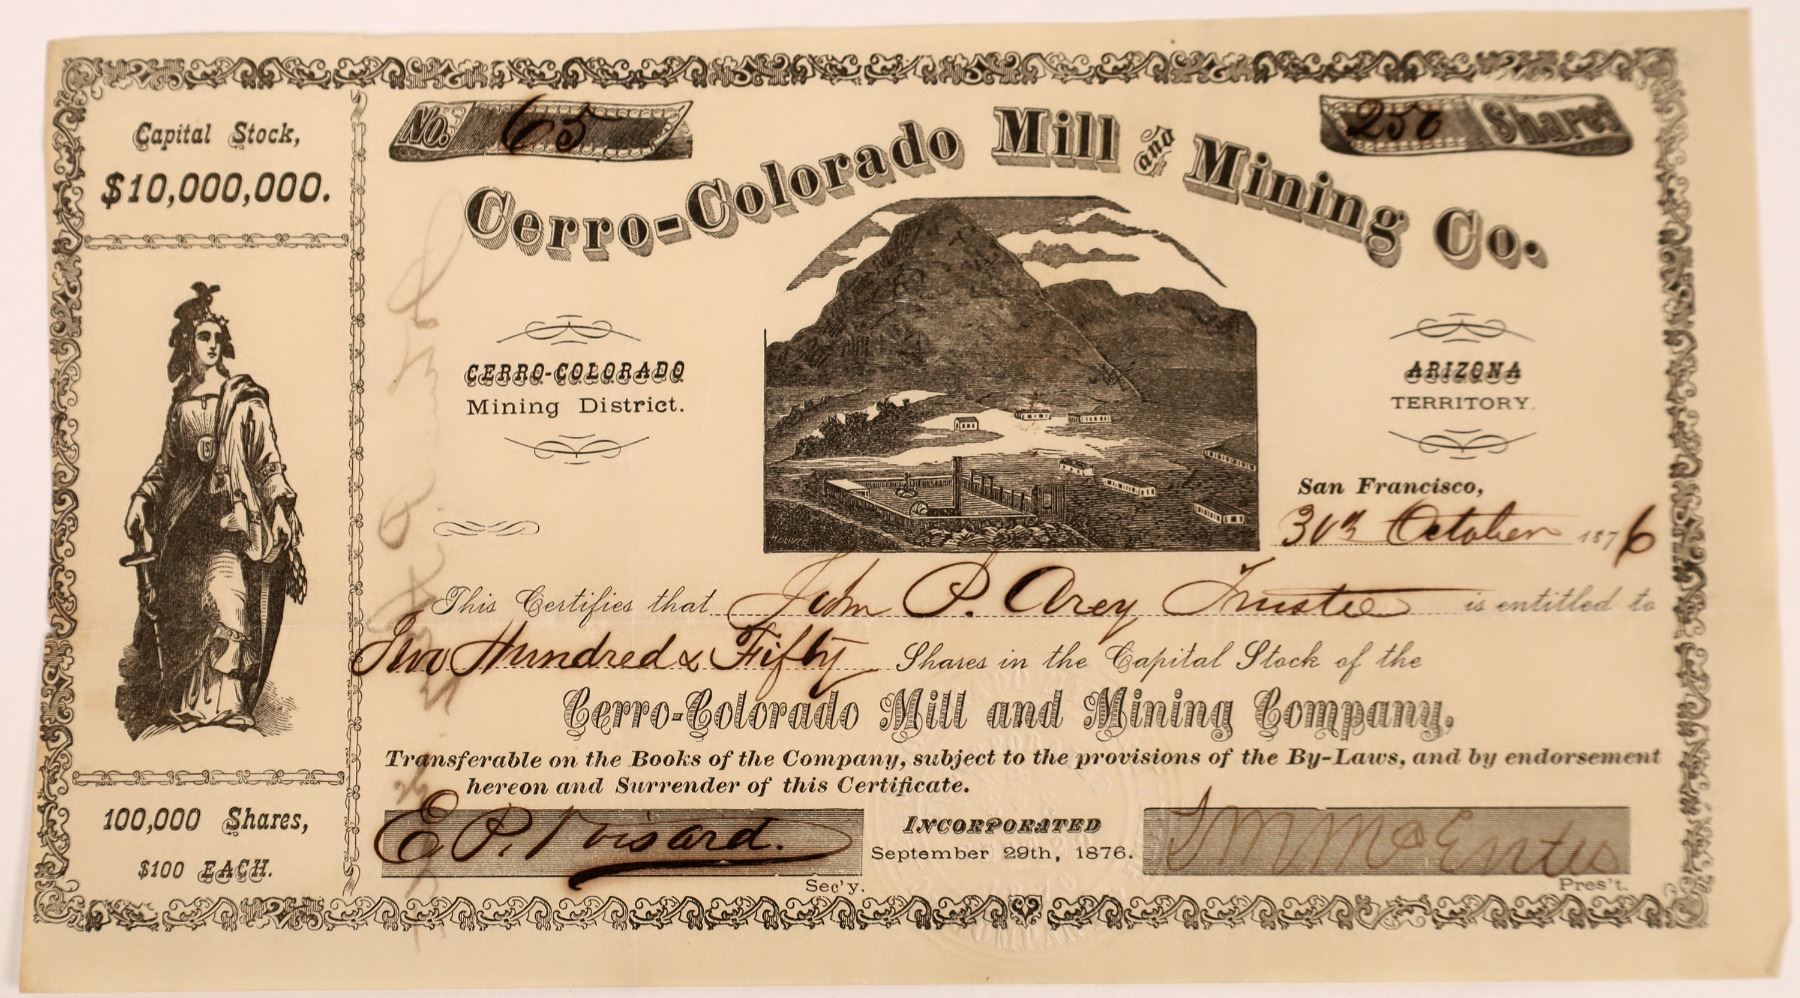 Capital Stock,
$10,000,000.
No. 65
250 Shares
Cerro-Colorado Mill and Mining Co.
CERRO-COLORADO
Mining District.
ARIZONA
TERRITORY.
San Francisco,
30th October 1876
This Certifies that John P. Arey Trustee is entitled to
Two Hundred & Fifty Shares in the Capital Stock of the
Cerro-Colorado Mill and Mining Company,
Transferable on the Books of the Company, subject to the provisions of the By-Laws, and by endorsement
hereon and Surrender of this Certificate.
100,000 Shares,
$100 EACH.
E. P.
Sec'y.
INCORPORATED
September 29th, 1876.
Pres't.